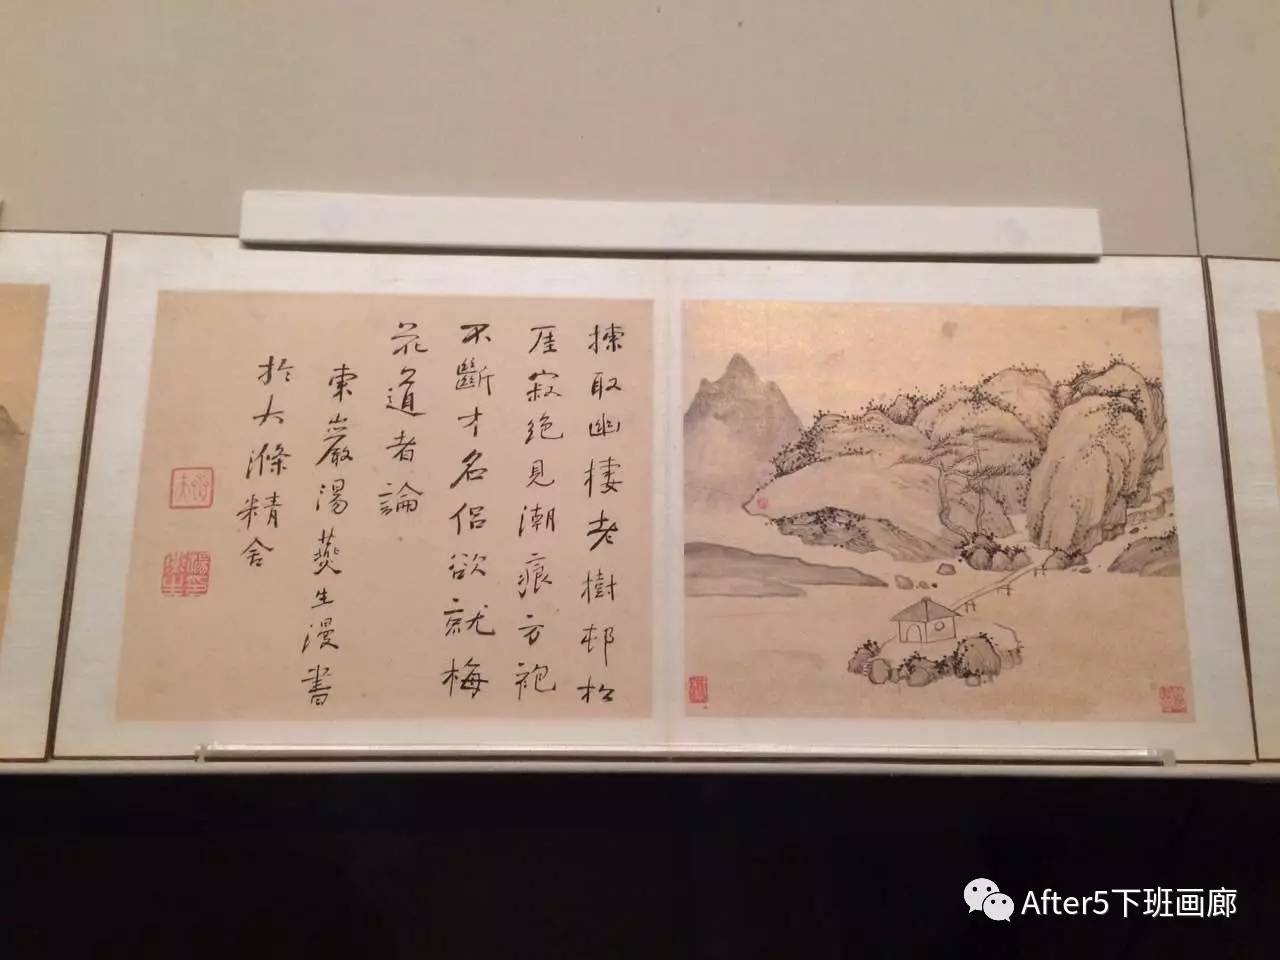 揀取幽棲老樹邨松
厓寂絶見潮痕方袍
不斷才名侶欲就梅
花道者論
東巖湯燕生漫書
於大滌精舍
After5下班画廊